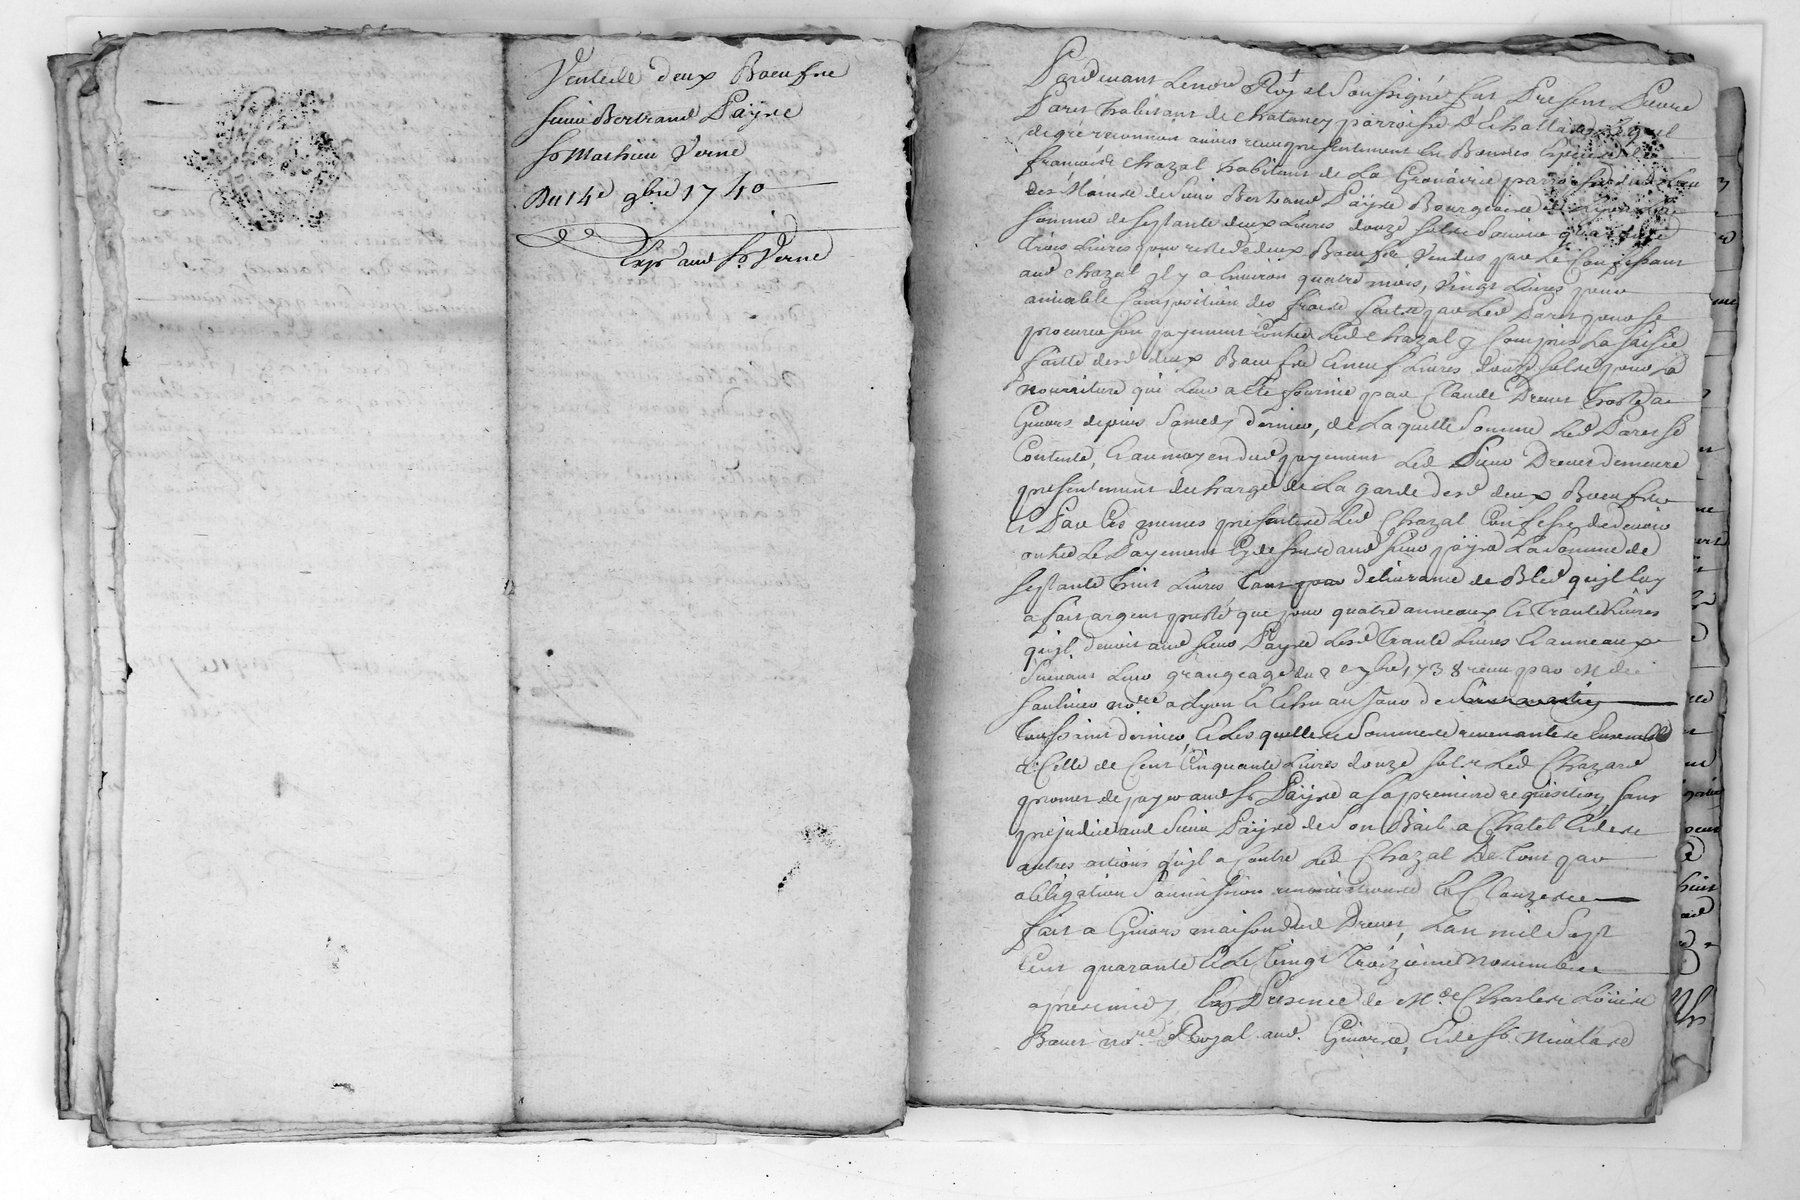 Vente de deux Boeufs
Sieur Bertrand Payre
Sr Mathieu Verne
Du 14e 9bre 1740
Expe aud Sr Verne
Pardevant Le nore Royal Soussigné fut Present Pierre
Paret habitant de Chataney parroisse D'Echallas Lequel
de gré reconnoit avoir receu presentement en Bonnes Especes de
françois Chazal habitant de La parroisse
des Mains de Sieur Bertrand Payre Bourgeois de Lyon La
Somme de Septante deux Livres douze Sols Sçavoir quarante
trois Livres pour reste de deux Boeufs Vendus par Le Confessant
aud Chazal il y a Environ quatre mois, Vingt Livres pour
amiable Composition des fraix faits par Led Paret pour se
procurer Son payement Contre Led Chazal y Compris La Saisie
faitte desd deux Boeufs et neuf Livres douze Sols pour La
nourriture qui Leur a Eté fournie par Claude Drevet hoste de
Givors depuis Samedy dernier, de Laquelle Somme Led Paret se
Contente, Et au moyen dud payement Led Sieur Drevet demeure
presentement decharge de La garde desd deux Boeufs
Et Par Ces memes presentes Led Chazal Confesse de devoir
outre Le Payement Cy dessus aud Sieur payre La Somme de
Septante huit Livres Tant pour délivrance de Bled quil luy
a fait argent presté que pour quatre anneaux Et Trante Livres
quil devoit aud Sieur Payre Lesd Trante Livres Et anneaux
Suivant Leur grangeage du 2e 7bre 1738 receu par Me
Saulnier nore a Lyon Et Echu au jour de
Toussaint dernier, Et Lesquelles Sommes revenantes Ensemble
a Celle de Cent Cinquante Livres douze Sols Led Chazard
promet de payer aud Sr Payre a Sa premiere requisition, Sans
prejudice aud Sieur Payre de Son Bail a Chatel Et des
autres actions quil a Contre Led Chazal De Tout par
obligation Soumission renonciations Et Clauzes
fait a Givors maison dud Drevet, Lan mil Sept
Cent quarante Et Le Vingt Troizieme novembre
apres midy En Presence de Me Charles Loüis
nore Royal aud. Givors, Et de Sr Nicolas